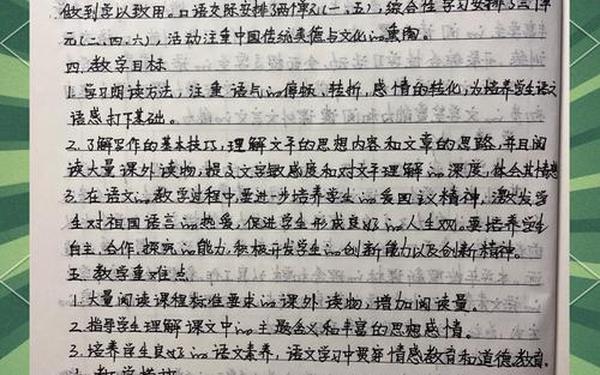 做到学以致用。口语交际安排了两个单元(一、五),综合性学习安排了三个单
元(二、四、六),活动注重中国传统美德与文化的熏陶。
四.教学目标
1.学习阅读方法,注重语气的停顿、转折,感情的转化,为培养学生语文
语感打下基础。
2.了解写作的基本技巧,理解文章的思想内容和文章的思路,并且阅
读大量课外读物,提文字敏感度和对文字理解的深度,体会其情感
3.在语文的教学过程中,要进一步培养学生的爱国主义精神,激发学
生对祖国语言的热爱,促进学生形成良好的人生观。要培养学生
自主、合作、探究的能力,积极开发学生的创新能力以及创新精神。
五.教学重难点
1.大量阅读课程标准要求的课外读物,增加阅读量。
2.指导学生理解课文中的主题含义和丰富的思想感情。
3.培养学生良好的语文素养,语文学习中贯穿情感教育和道德教育。